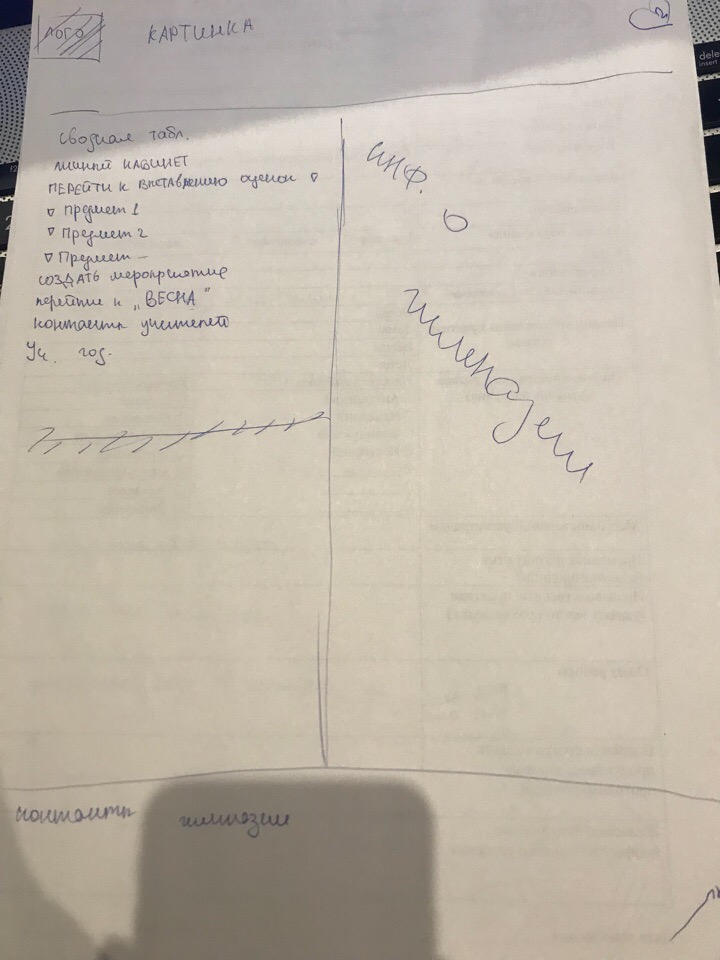 ЛОГО
КАРТИНКА
2
сводная табл.
личный КАБИНЕТ
ПЕРЕЙТИ К ВЫСТАВЛЕНИЮ оценок ▽
▽ Предмет 1
▽ Предмет 2
▽ Предмет —
СОЗДАТЬ мероприятие
перейти к „ВЕСНА"
контакты учителей
Уч. год.
инф.
о
гимназии
контакты гимназии